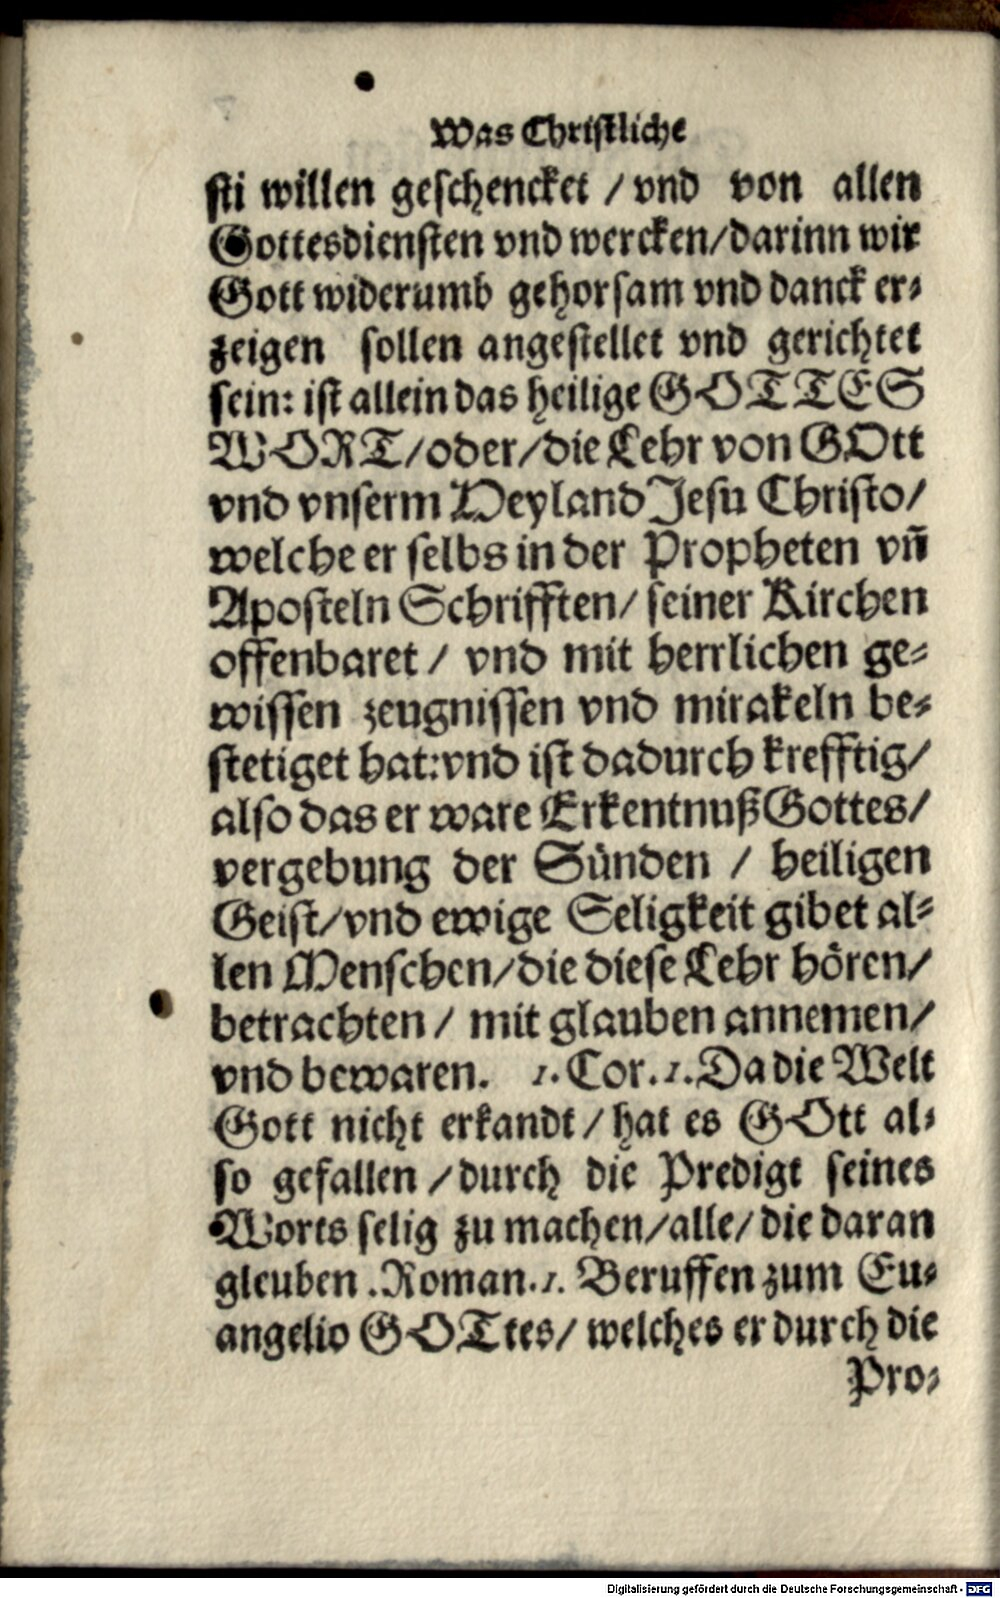 Was Christliche
sti willen geschencket / vnd von allen
Gottesdiensten vnd wercken/darinn wir
Gott widerumb gehorsam vnd danck er-
zeigen sollen angestellet vnd gerichtet
sein: ist allein das heilige GOTTES
WORT/oder/die Lehr von GOtt
vnd vnserm Heyland Jesu Christo/
welche er selbs in der Propheten vñ
Aposteln Schrifften/ seiner Kirchen
offenbaret / vnd mit herrlichen ge-
wissen zeugnissen vnd mirakeln be-
stetiget hat:vnd ist dadurch krefftig/
also das er ware Erkentnuß Gottes/
vergebung der Sünden / heiligen
Geist/vnd ewige Seligkeit gibet al-
len Menschen/die diese Lehr hören/
betrachten / mit glauben annemen/
vnd bewaren. 1.Cor.1.Da die Welt
Gott nicht erkandt / hat es GOtt al-
so gefallen /durch die Predigt seines
Worts selig zu machen/alle/ die daran
gleuben .Roman.1. Beruffen zum Eu-
angelio GOTtes/ welches er durch die
Pro-
Digitalisierung gefördert durch die Deutsche Forschungsgemeinschaft - DFG